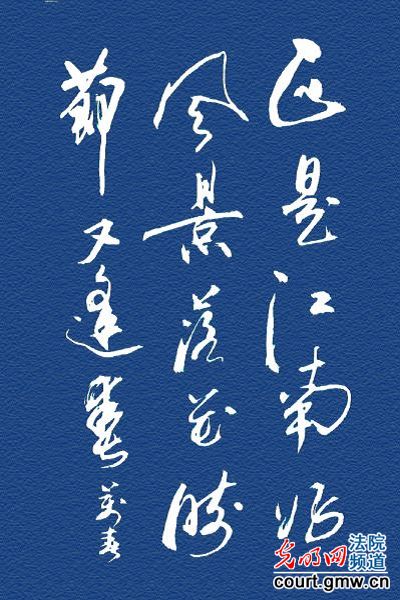 正是江南好
风景落花時
節又逢
萬春
光明网
法院
频道
court.gmw.cn